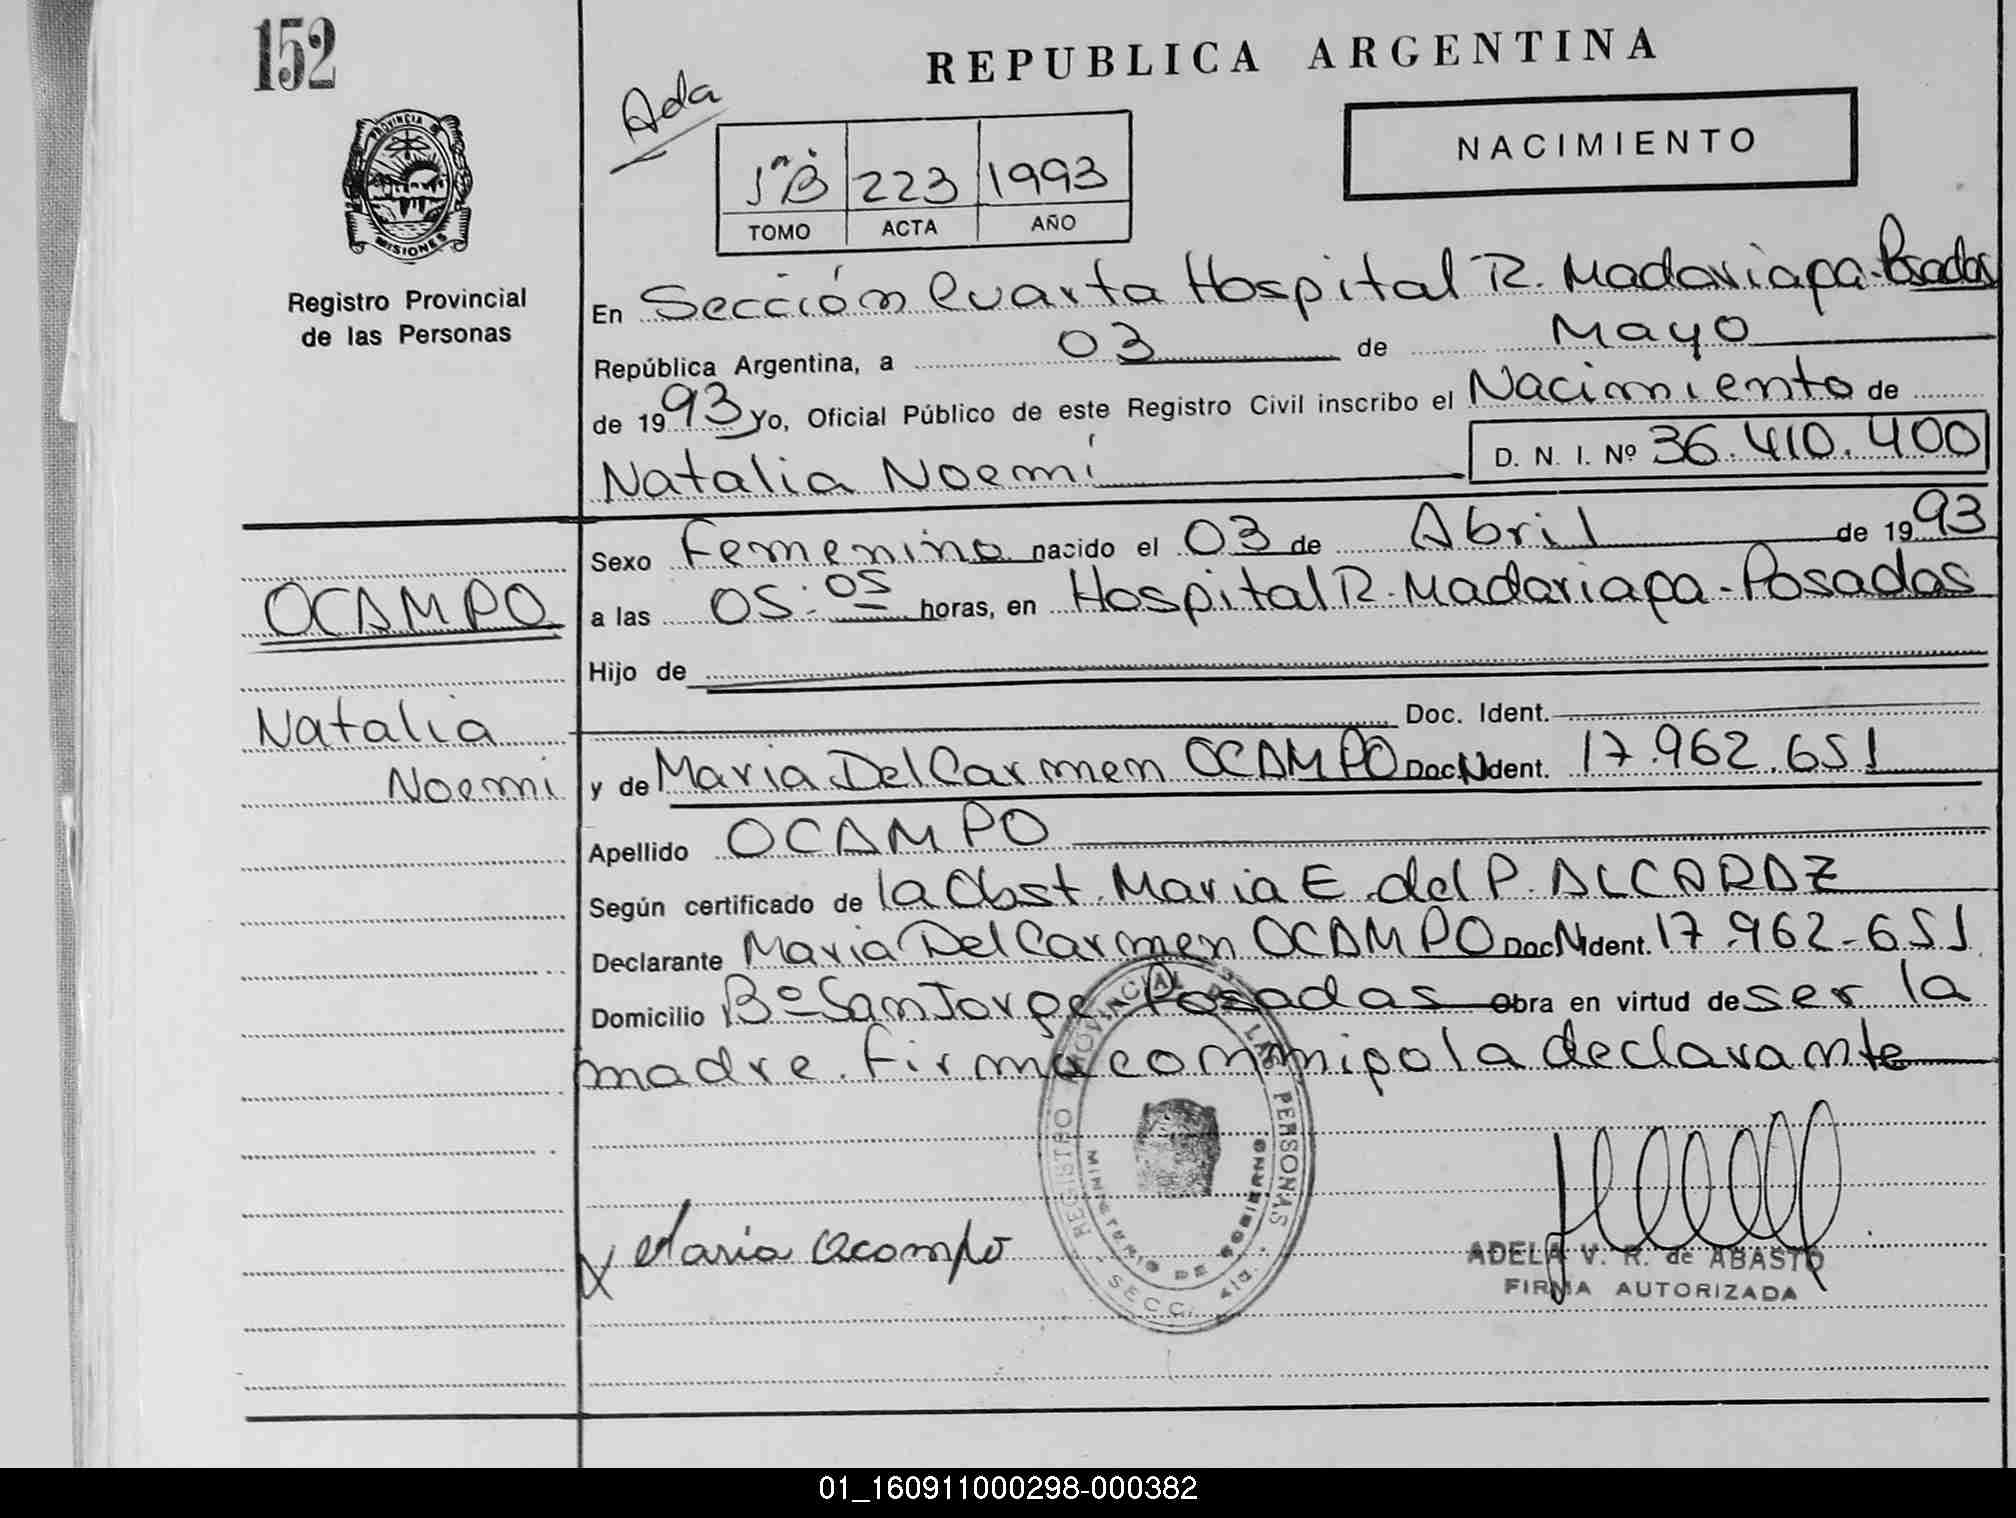 152
REPUBLICA ARGENTINA
Ada
NACIMIENTO
1ºB 223 1993
TOMO ACTA AÑO
PROVINCIA DE
MISIONES
Registro Provincial
de las Personas
En Sección Cuarta Hospital R. Madariaga-Posadas
República Argentina, a 03 de Mayo
de 1993 Yo, Oficial Público de este Registro Civil inscribo el Nacimiento de
Natalia Noemí D. N. I. Nº 36.410.400
Sexo Femenino nacido el 03 de Abril de 1993
OCAMPO
a las 05:05 horas, en Hospital R. Madariaga-Posadas
Hijo de
Natalia
Doc. Ident.
Noemi
y de Maria Del Carmen OCAMPO Doc. Ident. 17.962.651
Apellido OCAMPO
Según certificado de la Obst. Maria E. del P. ALCARAZ
Declarante Maria Del Carmen OCAMPO Doc. Ident. 17.962-651
Domicilio Bº San Jorge Posadas Obra en virtud de ser la
madre. Firma conmigo la declarante
REGISTRO PROVINCIAL DE LAS PERSONAS
MINISTERIO DE GOBIERNO
SECC. 4ta.
Maria Ocampo
ADELA V. R. de ABASTO
FIRMA AUTORIZADA
01_160911000298-000382